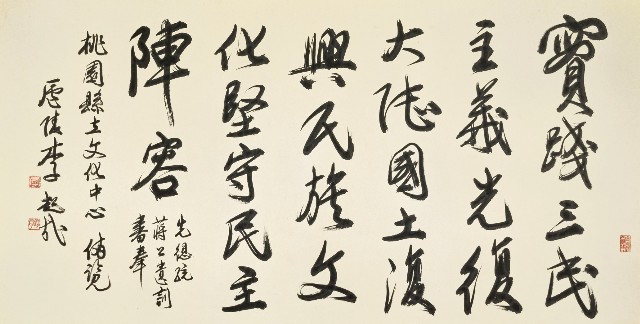 實踐三民
主義光復
大陸國土復
興民族文
化堅守民主
陣容
先總統
蔣公遺訓
書奉
桃園縣立文化中心 備覽
廬陵李超哉